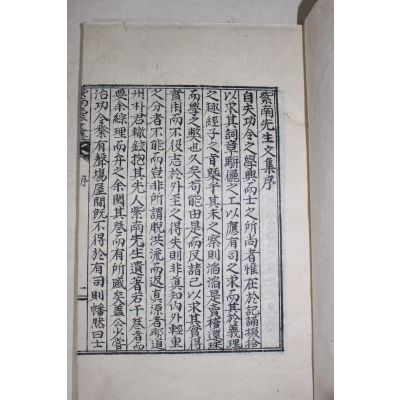 紫南先生文集序
自夫功令之學興而士之所尚者惟在於記誦掇拾
以求其詞章聯儷之工以應有司之求而其於義理
之趣經子之旨槩乎其未之察則滔滔是賣櫝還珠
而學之獘也久矣苟能由是而反諸己以求其實得
實用而不役志於外至之得失則非真知內外輕重
之分者不能而豈非所謂脫洪流而返直源者耶道
州朴君轍欽抱其先人紫南先生遺著若干卷而
要余綜理而弁之余閱其卷而有所感矣盖公少嘗
治功令業有聲場屋間旣不得於有司則幡然曰士
序
一